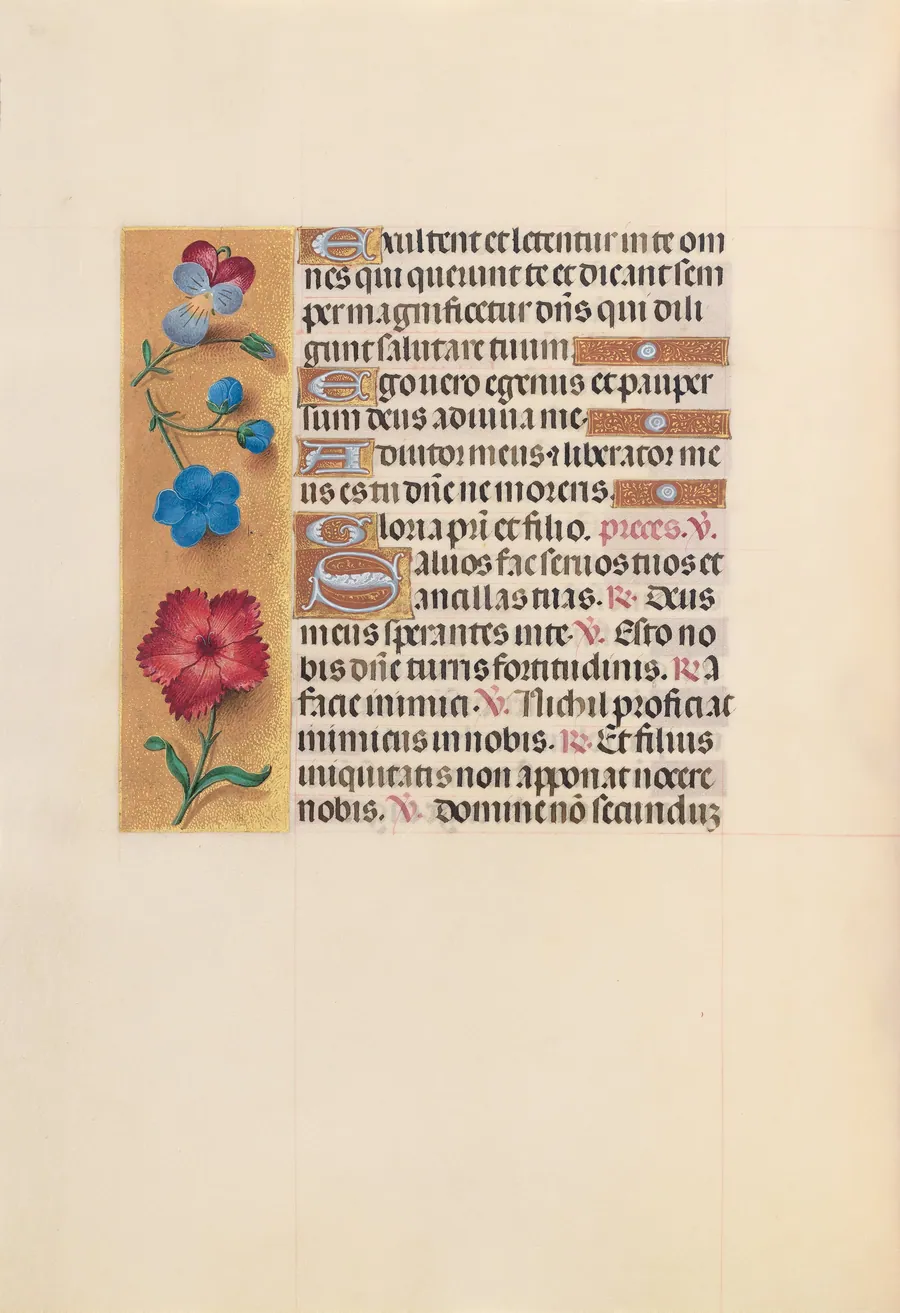 Exultent et letentur in te om
nes qui querunt te et dicant sem
per magnificetur dn̄s qui dili
gunt salutare tuum
Ego uero egenus et pauper
sum deus adiuua me
Adiutor meus ⁊ liberator me
us es tu dn̄e ne moreris.
Gloria pr̄i et filio. preces. V̇.
Saluos fac seruos tuos et
ancillas tuas. R̷. Deus
meus sperantes in te. V̇. Esto no
bis dn̄e turris fortitudinis. R̷. A
facie inimici. V̇. Nichil proficiat
inimicus in nobis. R̷. Et filius
iniquitatis non apponat nocere
nobis. V̇. Domine nō secunduꝫ